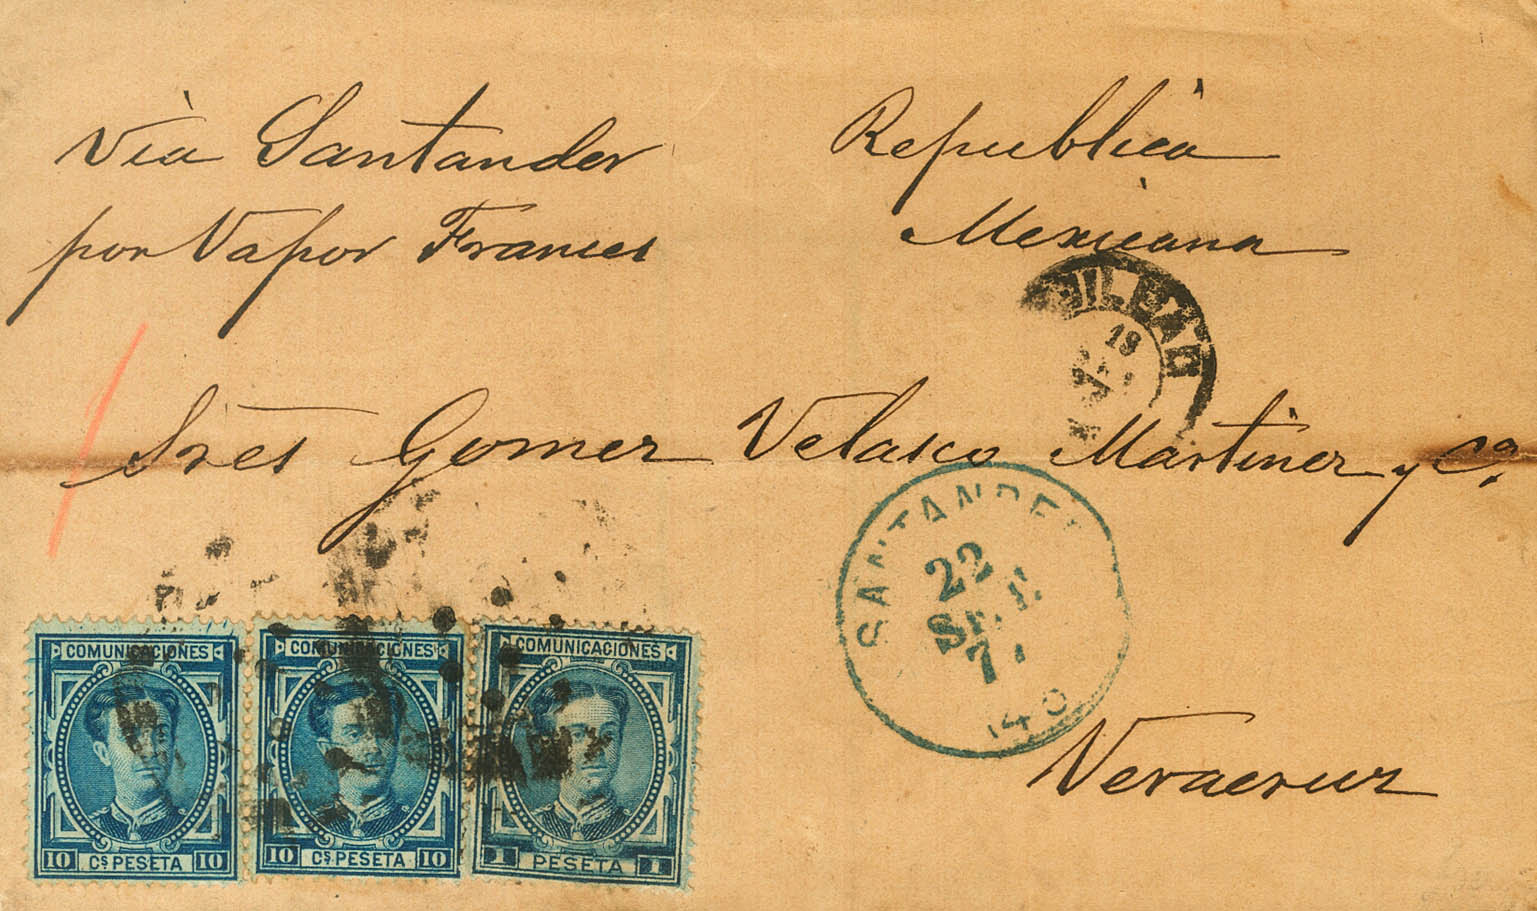 Via Santander
por Vapor Frances
Republica
Mexicana
18
Sres Gomez Velasco Martinez y Ca.
SANTANDER
22
7
Veracruz
COMUNICACIONES
10 Cs PESETA 10
COMUNICACIONES
10 Cs PESETA 10
COMUNICACIONES
1 PESETA 1